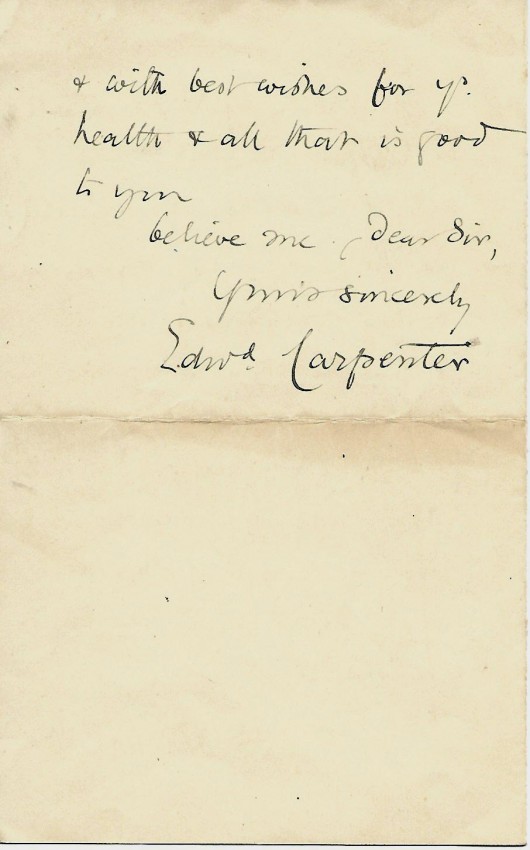 & with best wishes for yr.
health & all that is good
to you
believe me Dear Sir,
Yours sincerely
Edwd. Carpenter